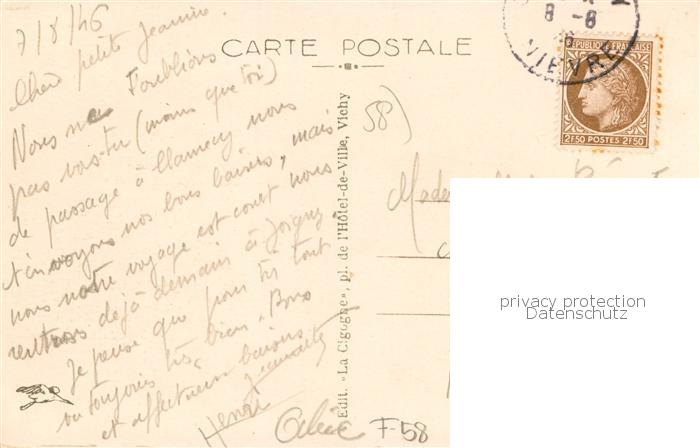 7/8/46
Chère petite Jeannine.
Nous ne t'oublions
pas vois-tu (moins que toi)
de passage à Clamecy nous
t'envoyons nos bons baisers, mais
nous notre voyage est court nous
rentrons déjà demain à Joigny.
Je pense que pour toi tout
va toujours très bien. Bons
et affectueux baisers
Henri
CARTE POSTALE
Edit. "La Cigogne", pl. de l'Hôtel-de-Ville, Vichy
8 -8
NIEVRE
REPUBLIQUE FRANÇAISE
2F50 POSTES 2F50
58)
privacy protection
Datenschutz
F-58